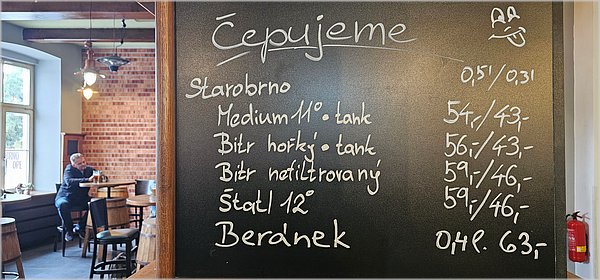 Čepujeme
Starobrno 0,5l/0,3l
Medium 11° • tank 54,-/43,-
Bitr hořký • tank 56,-/43,-
Bitr nefiltrovaný 59,-/46,-
Štatl 12° 59,-/46,-
Berdnek 0,4l. 63,-